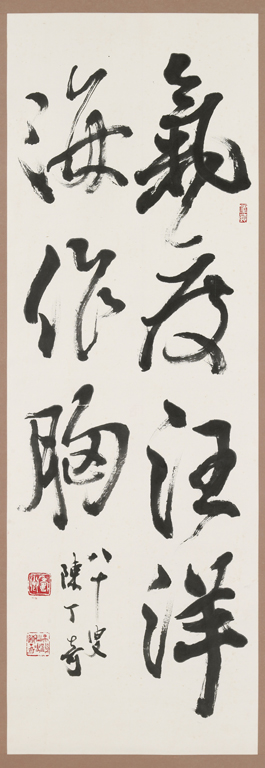 氣度汪洋
海作胸
八十叟
陳丁奇